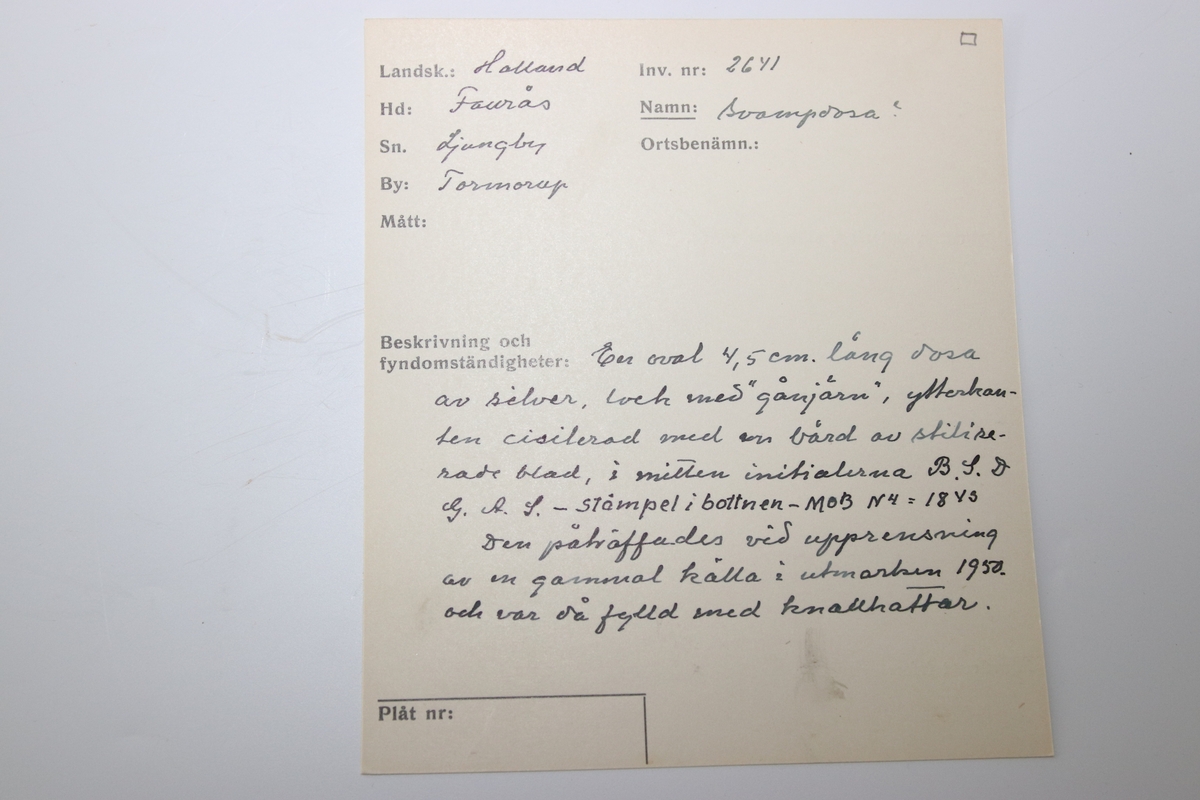 Landsk.: Halland
Inv. nr: 2641
Hd: Faurås
Namn: Svampdosa?
Sn. Ljungby
Ortsbenämn.:
By: Tormorup
Mått:
Beskrivning och
fyndomständigheter: En oval 4,5 cm. lång dosa
av silver, lock med "gånjärn", ytterkan-
ten ciselerad med en bård av stilise-
rade blad, i mitten initialerna B. S. D
G. A. S. – stämpel i bottnen – MOB N4 = 1843
Den påträffades vid upprensning
av en gammal källa i utmarken 1950.
och var då fylld med knallhattar.
Plåt nr: